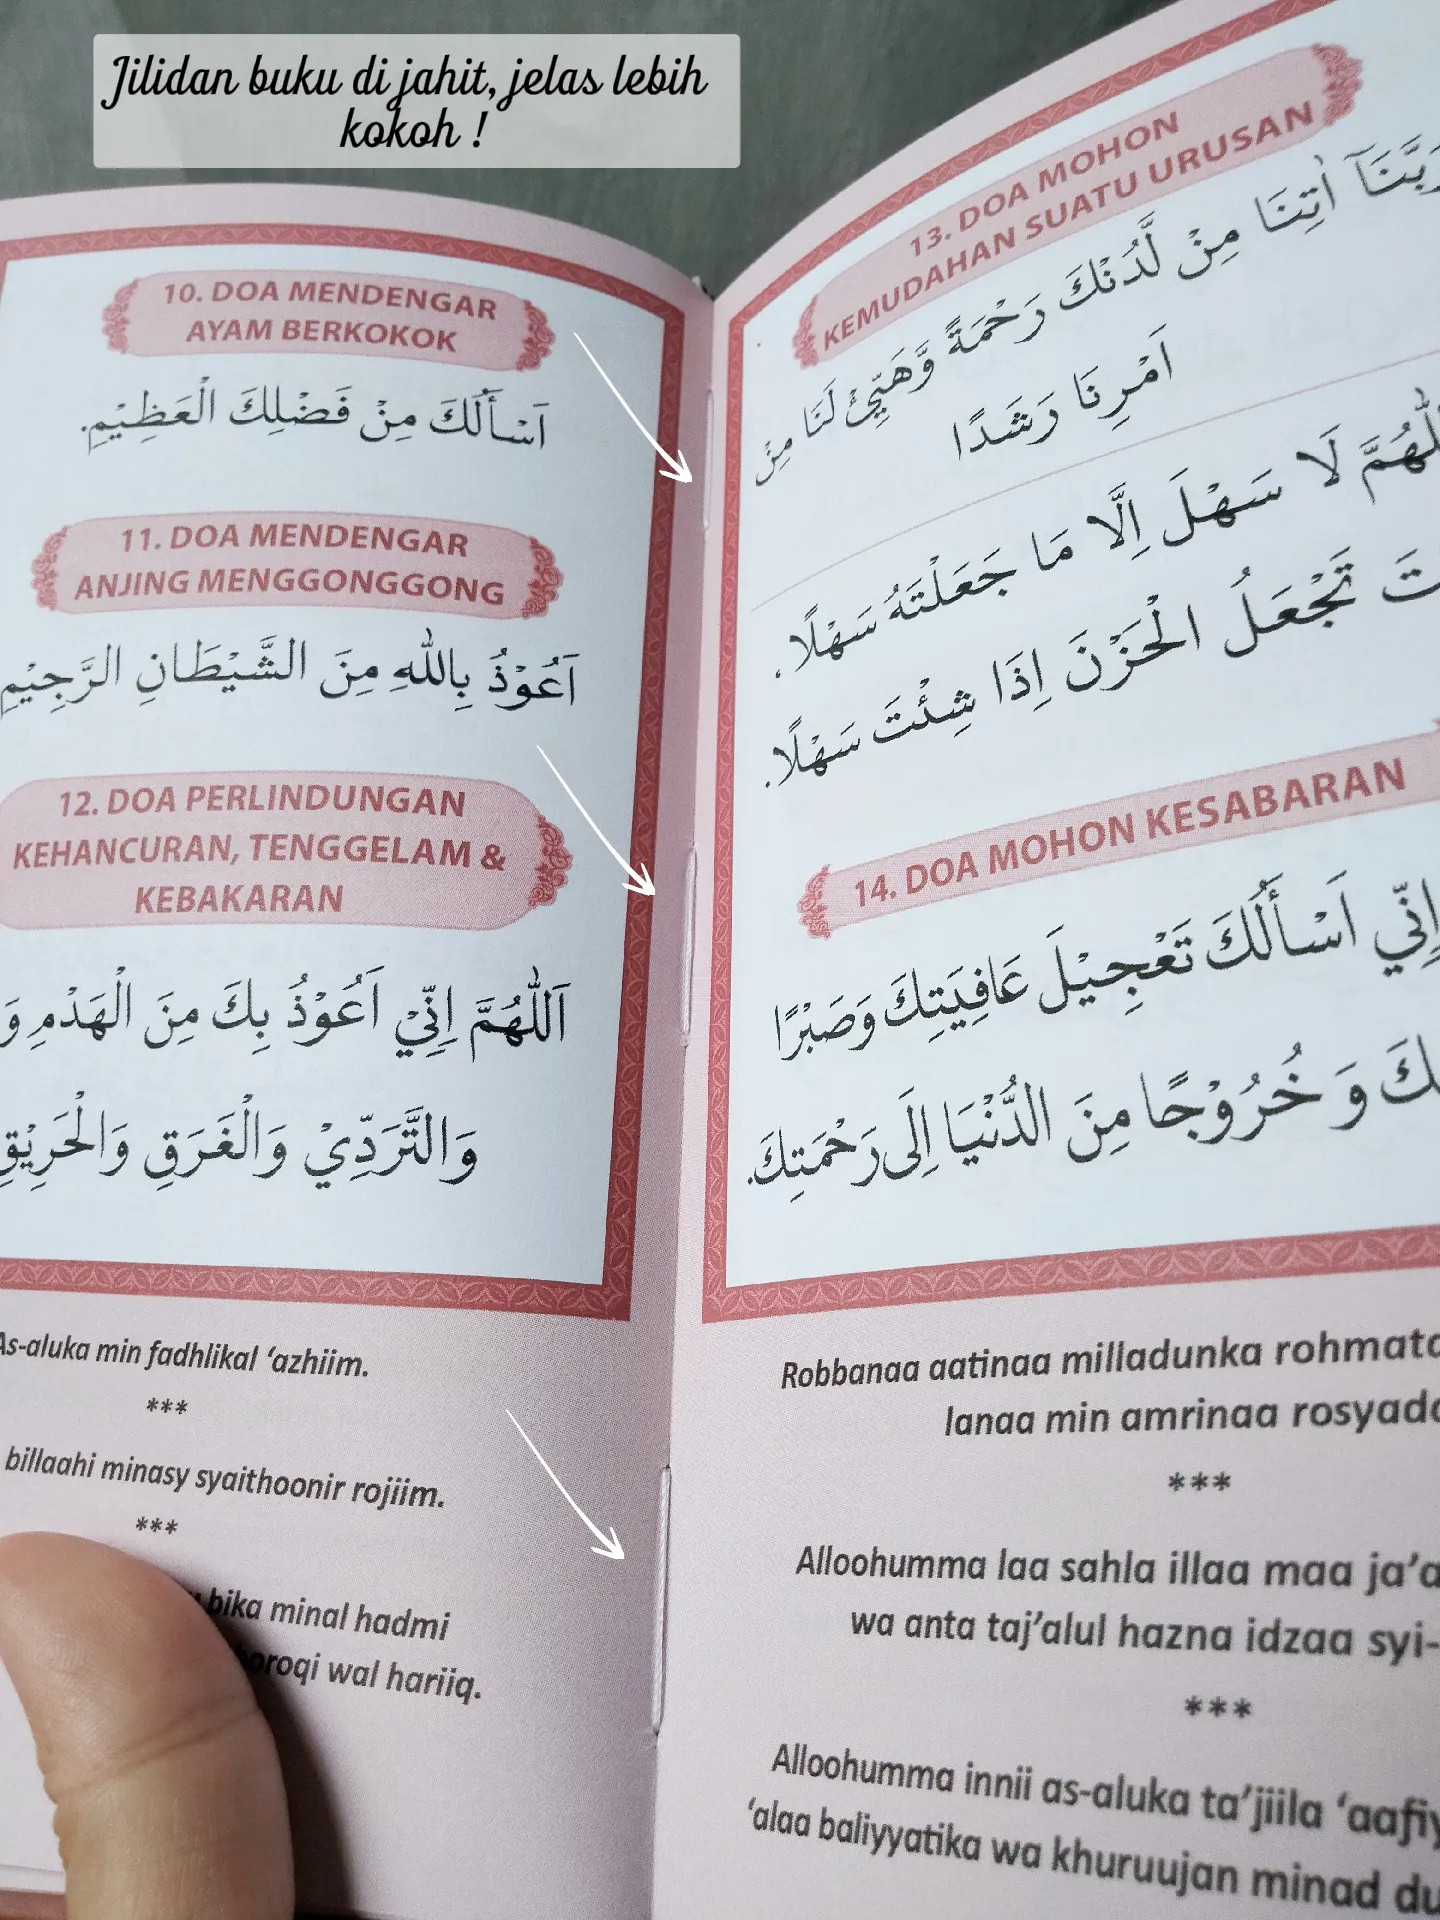 Jilidan buku di jahit, jelas lebih
kokoh !
10. DOA MENDENGAR
AYAM BERKOKOK
اَسْأَلُكَ مِنْ فَضْلِكَ الْعَظِيْمِ.
11. DOA MENDENGAR
ANJING MENGGONGGONG
اَعُوْذُ بِاللّٰهِ مِنَ الشَّيْطَانِ الرَّجِيْمِ
12. DOA PERLINDUNGAN
KEHANCURAN, TENGGELAM &
KEBAKARAN
اَللّٰهُمَّ اِنِّيْ اَعُوْذُ بِكَ مِنَ الْهَدْمِ وَ
وَالتَّرَدِّيْ وَالْغَرَقِ وَالْحَرِيْقِ
As-aluka min fadhlikal ‘azhiim.
***
billaahi minasy syaithoonir rojiim.
***
bika minal hadmi
wal hariiq.
13. DOA MOHON
KEMUDAHAN SUATU URUSAN
رَبَّنَآ اٰتِنَا مِنْ لَّدُنْكَ رَحْمَةً وَّهَيِّئْ لَنَا مِنْ
اَمْرِنَا رَشَدًا
لَا سَهْلَ اِلَّا مَا جَعَلْتَهُ سَهْلًا.
تَجْعَلُ الْحَزْنَ اِذَا شِئْتَ سَهْلًا.
14. DOA MOHON KESABARAN
اِنِّي اَسْأَلُكَ تَعْجِيْلَ عَافِيَتِكَ وَصَبْرًا
وَ خُرُوْجًا مِنَ الدُّنْيَا اِلَى رَحْمَتِكَ.
Robbanaa aatinaa milladunka
lanaa min amrinaa
***
Alloohumma laa sahla illaa maa
wa anta taj’alul hazna idzaa
***
Alloohumma innii as-aluka ta’jiila
‘alaa baliyyatika wa khuruujan minad